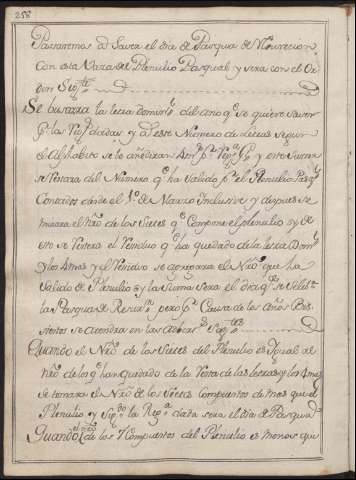 258
Passaremos â Saver el dia de Pasqua de Resurreccion
Con esta Data del Plenilunio Pasqual y sera con el Or
den Sigte
Se buscara la letra dominl del ano qe se quiere saver
pr las Regs dadas, y de este Numero de letras segun
el Alphabeto se le añediran 4 y esta Suma
se restara del Numero qe ha valido pr el Plenilunio Pasql
Contados desde el 1o de Marzo Inclusive y despues se
mirara el Nro de los Sietes qe Compone el plenilunio y de
esto se restara el Residuo qe ha quedado de la letra Doml
y los 4 mas y el residuo se agregara el Nro que ha
Valido de Plenilunio y la Suma sera el dia qe se Selebra
la Pasqua de Resurn pero pr Causa de los años Bis
siestos se atendra en las Sigtes
Quando el Nro de los Sietes del Plenilunio es Igual al
Nro de lo qe han quedado de la Resta de las letras y los 4 mas
se tomara el Nro de los Sietes Compuestos de mas que el
Plenilunio y Sigdo la Rega dada sera el dia de Pasqua
Quando el Nro de los 7 Compuestos del Plenilunio es menos que